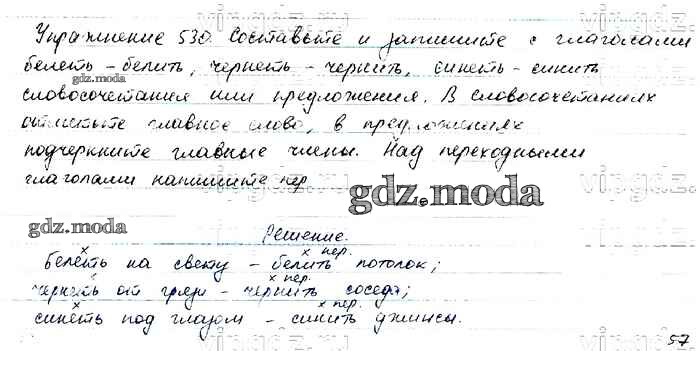 Упражнение 530. Составьте и запишите с глаголами
белеть – белить, чернеть – чернить, синеть – синить
словосочетания или предложения. В словосочетаниях
отметьте главное слово, в предложениях
подчеркните главные члены. Над переходными
глаголами напишите пер
gdz.moda
gdz.moda
gdz.moda
Решение.
х х пер.
белеть на свету – белить потолок;
х х пер.
чернеть от грязи – чернить соседа;
х х пер.
синеть под глазом – синить джинсы.
57